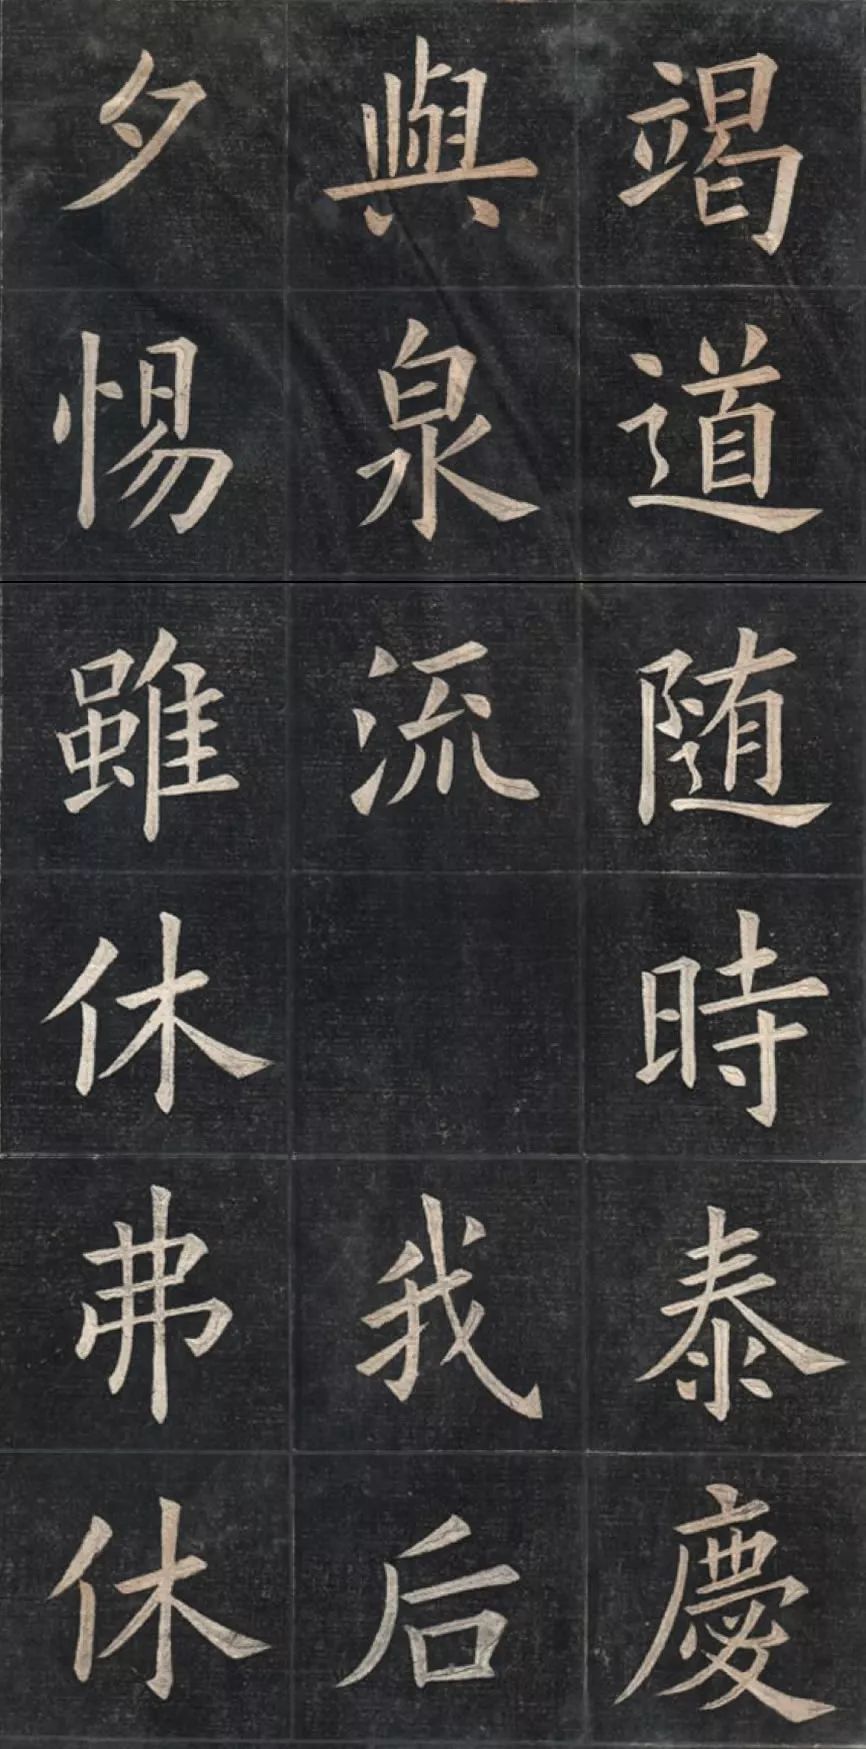 竭道随時泰慶
與泉流 我后
夕惕雖休弗休